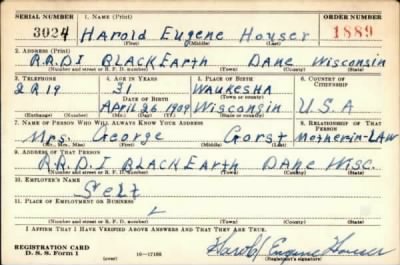 SERIAL NUMBER 1. NAME (Print) ORDER NUMBER
3024 Harold Eugene Houser 1889
(First) (Middle) (Last)
2. ADDRESS (Print)
R.R.D I BLACK Earth Dane Wisconsin
(Number and street or R. F. D. number) (Town) (County) (State)
3. TELEPHONE 4. AGE IN YEARS 5. PLACE OF BIRTH 6. COUNTRY OF CITIZENSHIP
2 R 19 31 Waukesha
DATE OF BIRTH (Town or county)
April 26 1909 Wisconsin U.S.A
(Exchange) (Number) (Mo.) (Day) (Yr.) (State or country)
7. NAME OF PERSON WHO WILL ALWAYS KNOW YOUR ADDRESS 8. RELATIONSHIP OF THAT PERSON
Mrs. George Gorst Motherin-LAW
(Mr., Mrs., Miss) (First) (Middle) (Last)
9. ADDRESS OF THAT PERSON
R.R.D. I BLACK Earth Dane Wisc.
(Number and street or R. F. D. number) (Town) (County) (State)
10. EMPLOYER'S NAME
Self
11. PLACE OF EMPLOYMENT OR BUSINESS
(Number and street or R. F. D. number) (Town) (County) (State)
I AFFIRM THAT I HAVE VERIFIED ABOVE ANSWERS AND THAT THEY ARE TRUE.
REGISTRATION CARD
D. S. S. Form 1 (over) 16—17105 Harold Eugene Houser
(Registrant's signature)